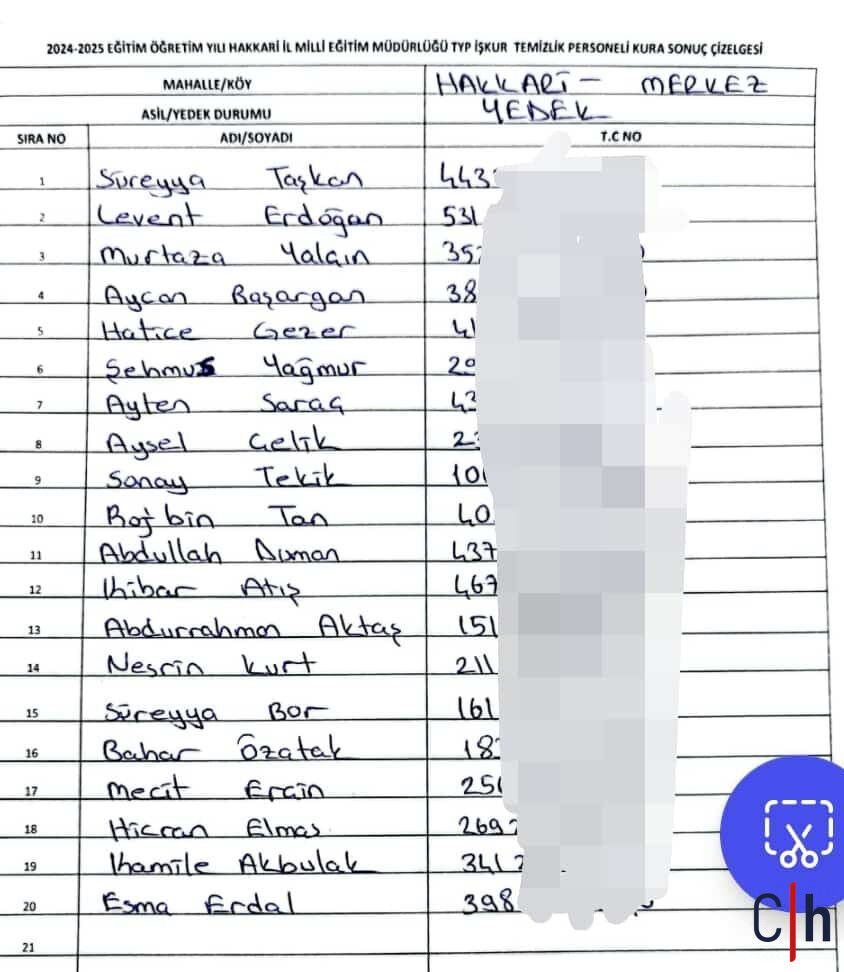 2024-2025 EĞİTİM ÖĞRETİM YILI HAKKARİ İL MİLLİ EĞİTİM MÜDÜRLÜĞÜ TYP İŞKUR TEMİZLİK PERSONELİ KURA SONUÇ ÇİZELGESİ
MAHALLE/KÖY HAKKARİ - MERKEZ
ASİL/YEDEK DURUMU YEDEK
SIRA NO ADI/SOYADI T.C NO
1 Süreyya Taşkan 443
2 Levent Erdoğan 531
3 Murtaza Yalçın 35
4 Aycan Başargan 38
5 Hatice Gezer 41
6 Şehmus Yağmur 29
7 Ayten Saraç 43
8 Aysel Çelik 2
9 Sonay Tekik 10
10 Rojbin Tan 40
11 Abdullah 437
12 Ihibar Atış 467
13 Abdurrahman Aktaş 151
14 Nesrin Kurt 211
15 Süreyya Bor 161
16 Bahar Özatak 18
17 Mecit Ercin 25
18 Hicran Elmas 269
19 Ihamile Akbulak 341
20 Esma Erdal 398
21
C|h